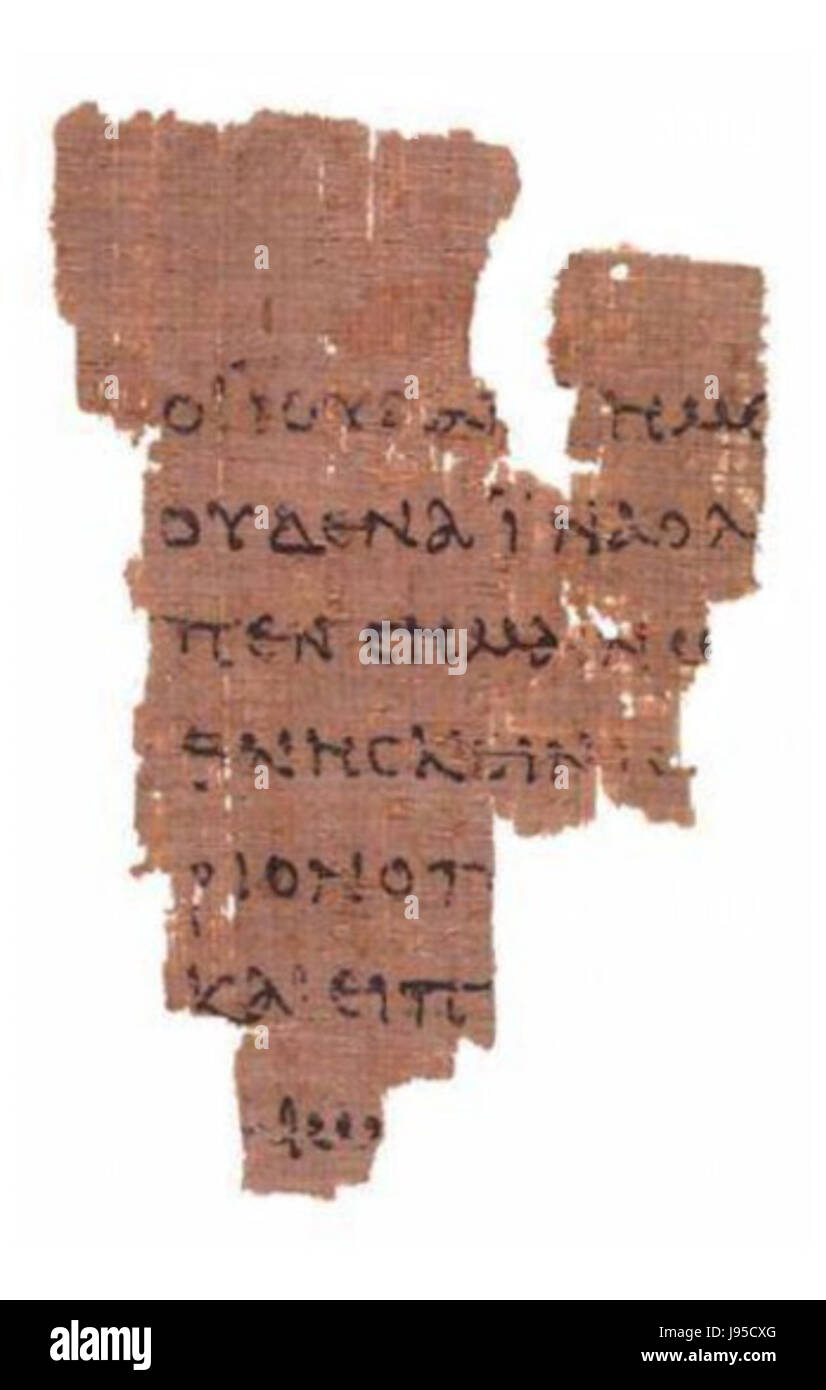 ΟΙΪΟΥΔΑΙ ΗΜΕ
ΟΥΔΕΝΑΪΝΑΟΛ
ΠΕΝΣΗΜΑΙΝΩ
ΘΝΗΣΚΕΙΝΙΣ
ΡΙΟΝΟΠ
ΚΑΙΕΙΠ
alamy
Image ID: J95CXG
www.alamy.com